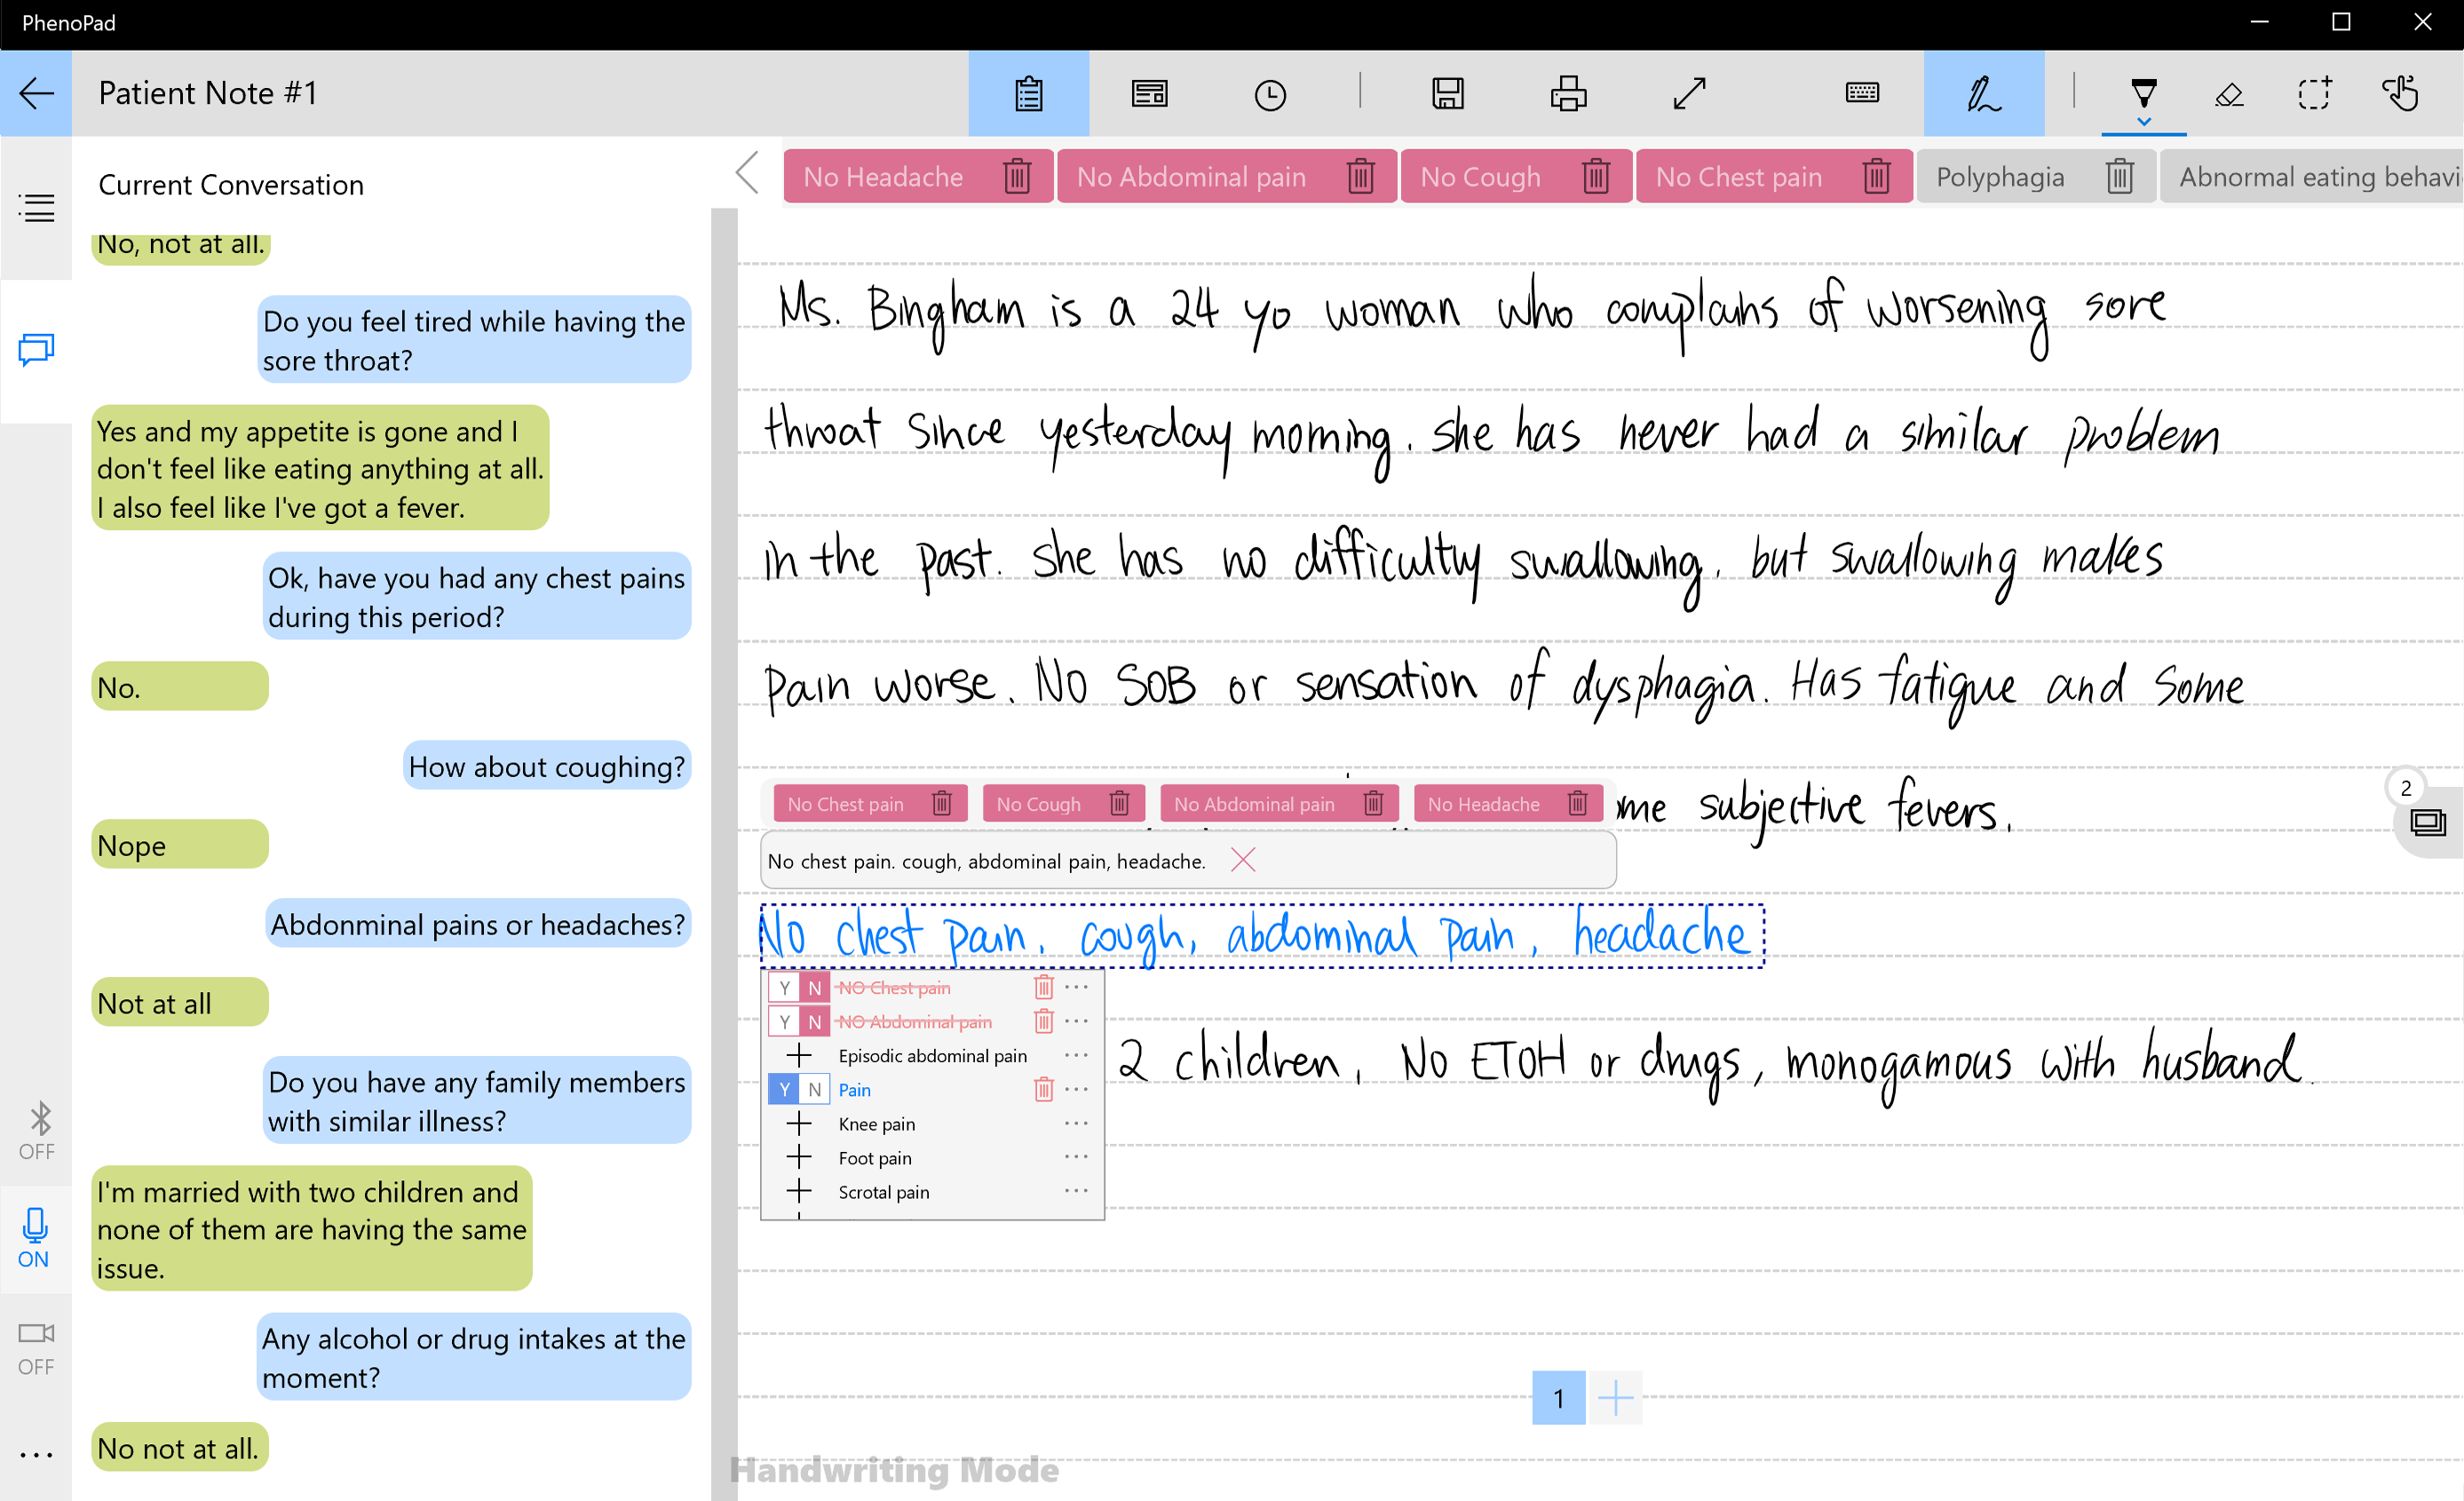 PhenoPad
Patient Note #1
Current Conversation
No, not at all.
Do you feel tired while having the
sore throat?
Yes and my appetite is gone and I
don't feel like eating anything at all.
I also feel like I've got a fever.
Ok, have you had any chest pains
during this period?
No.
How about coughing?
Nope
Abdonminal pains or headaches?
Not at all
Do you have any family members
with similar illness?
I'm married with two children and
none of them are having the same
issue.
Any alcohol or drug intakes at the
moment?
No not at all.
OFF
ON
OFF
No Headache No Abdominal pain No Cough No Chest pain Polyphagia Abnormal eating behavi
Ms. Bingham is a 24 yo woman who complains of worsening sore
throat since yesterday morning. she has never had a similar problem
in the past. she has no difficulty swallowing. but swallowing makes
pain worse. No SOB or sensation of dysphagia. Has fatigue and some
subjective fevers.
No Chest pain No Cough No Abdominal pain No Headache
2
No chest pain. cough, abdominal pain, headache.
No chest pain. cough, abdominal pain, headache
Y N NO Chest pain
Y N NO Abdominal pain
Episodic abdominal pain
Y N Pain
Knee pain
Foot pain
Scrotal pain
2 children, No ETOH or drugs, monogamous with husband.
1
Handwriting Mode